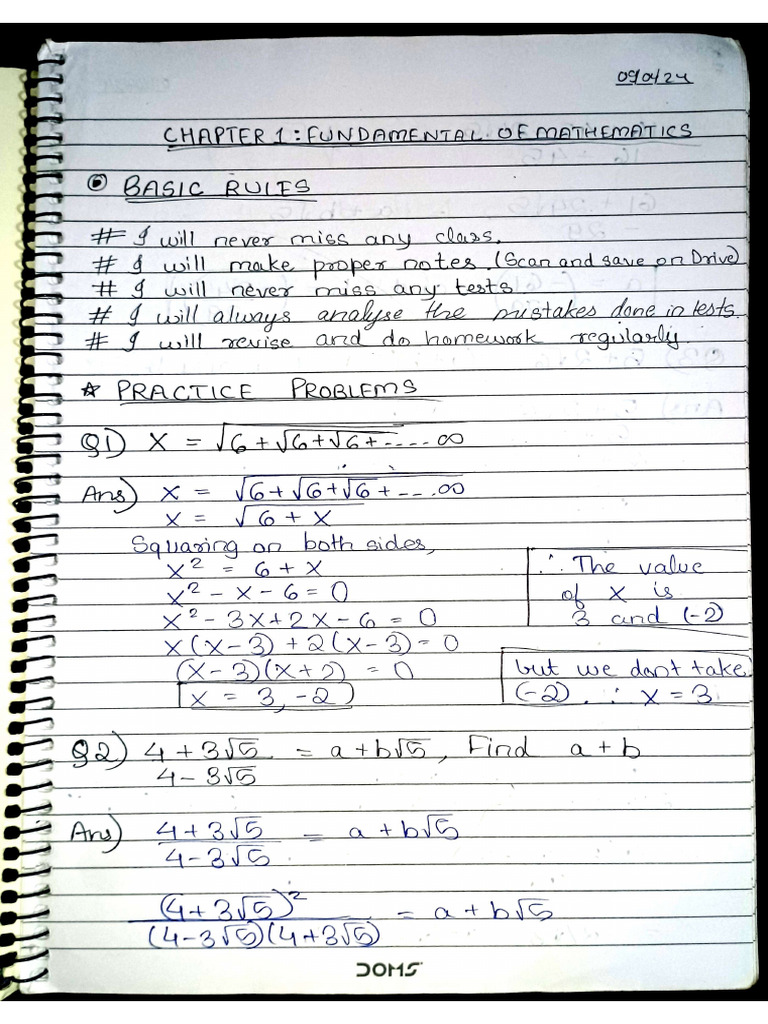 09/01/24
CHAPTER 1: FUNDAMENTAL OF MATHEMATICS
BASIC RULES
# I will never miss any class.
# I will make proper notes. (Scan and save on Drive)
# I will never miss any tests
# I will always analyse the mistakes done in tests.
# I will revise and do homework regularly.
* PRACTICE PROBLEMS
Q1) X = √6+√6+√6+-....∞
Ans) x = √6+√6+√6+-...∞
x = √6+x
Squaring on both sides,
x² = 6+x
x² - x - 6 = 0
x² - 3x + 2x - 6 = 0
x(x-3) + 2(x-3) = 0
(x-3)(x+2) = 0
x = 3, -2
∴ The value
of x is
3 and (-2)
but we don't take
(-2). ∴ x = 3.
Q2) 4+3√5 = a+b√5, Find a+b
4-3√5
Ans) 4+3√5 = a+b√5
4-3√5
(4+3√5)² = a+b√5
(4-3√5)(4+3√5)
DOMS